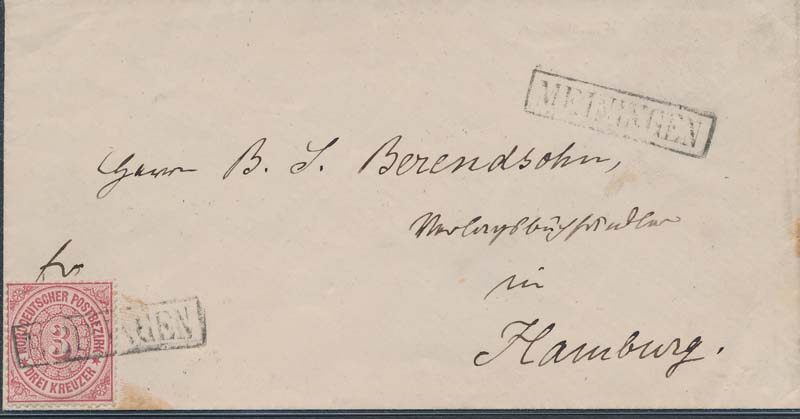 MEININGEN
Herrn B. S. Berendsohn,
Verlagsbuchhändler
in
Hamburg.
fr
NORDDEUTSCHER POSTBEZIRK
3
DREI KREUZER
MEININGEN